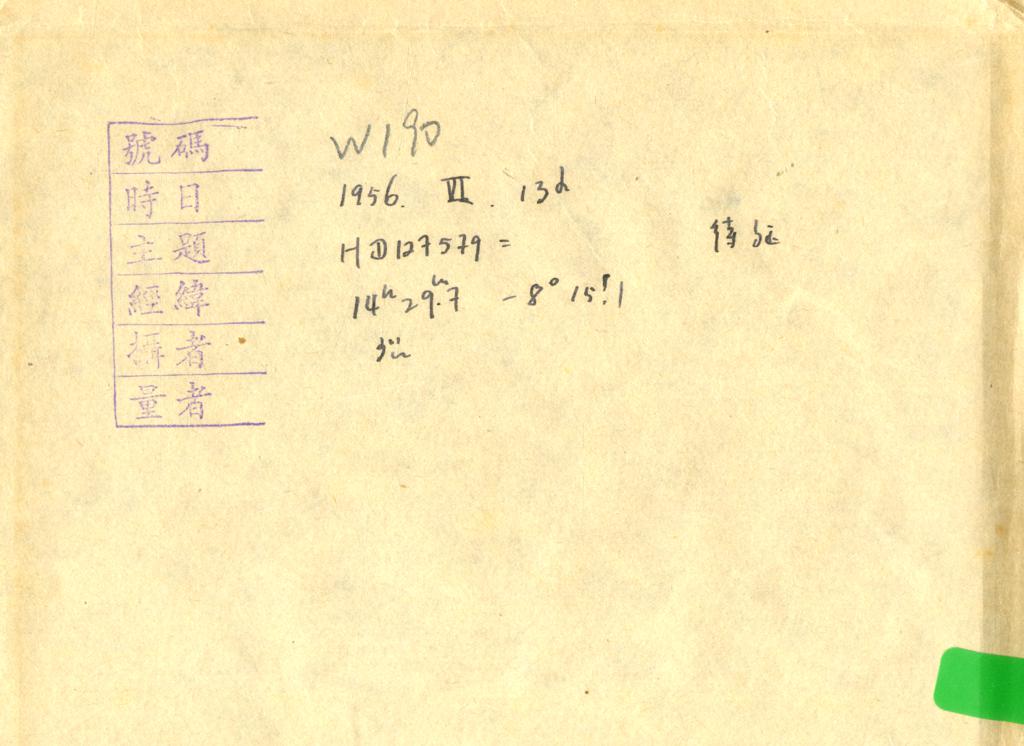 號碼 W190
時日 1956. VI. 13d
主題 HD127579 = 待证
經緯 14h29m.7 -8° 15!1
攝者
量者